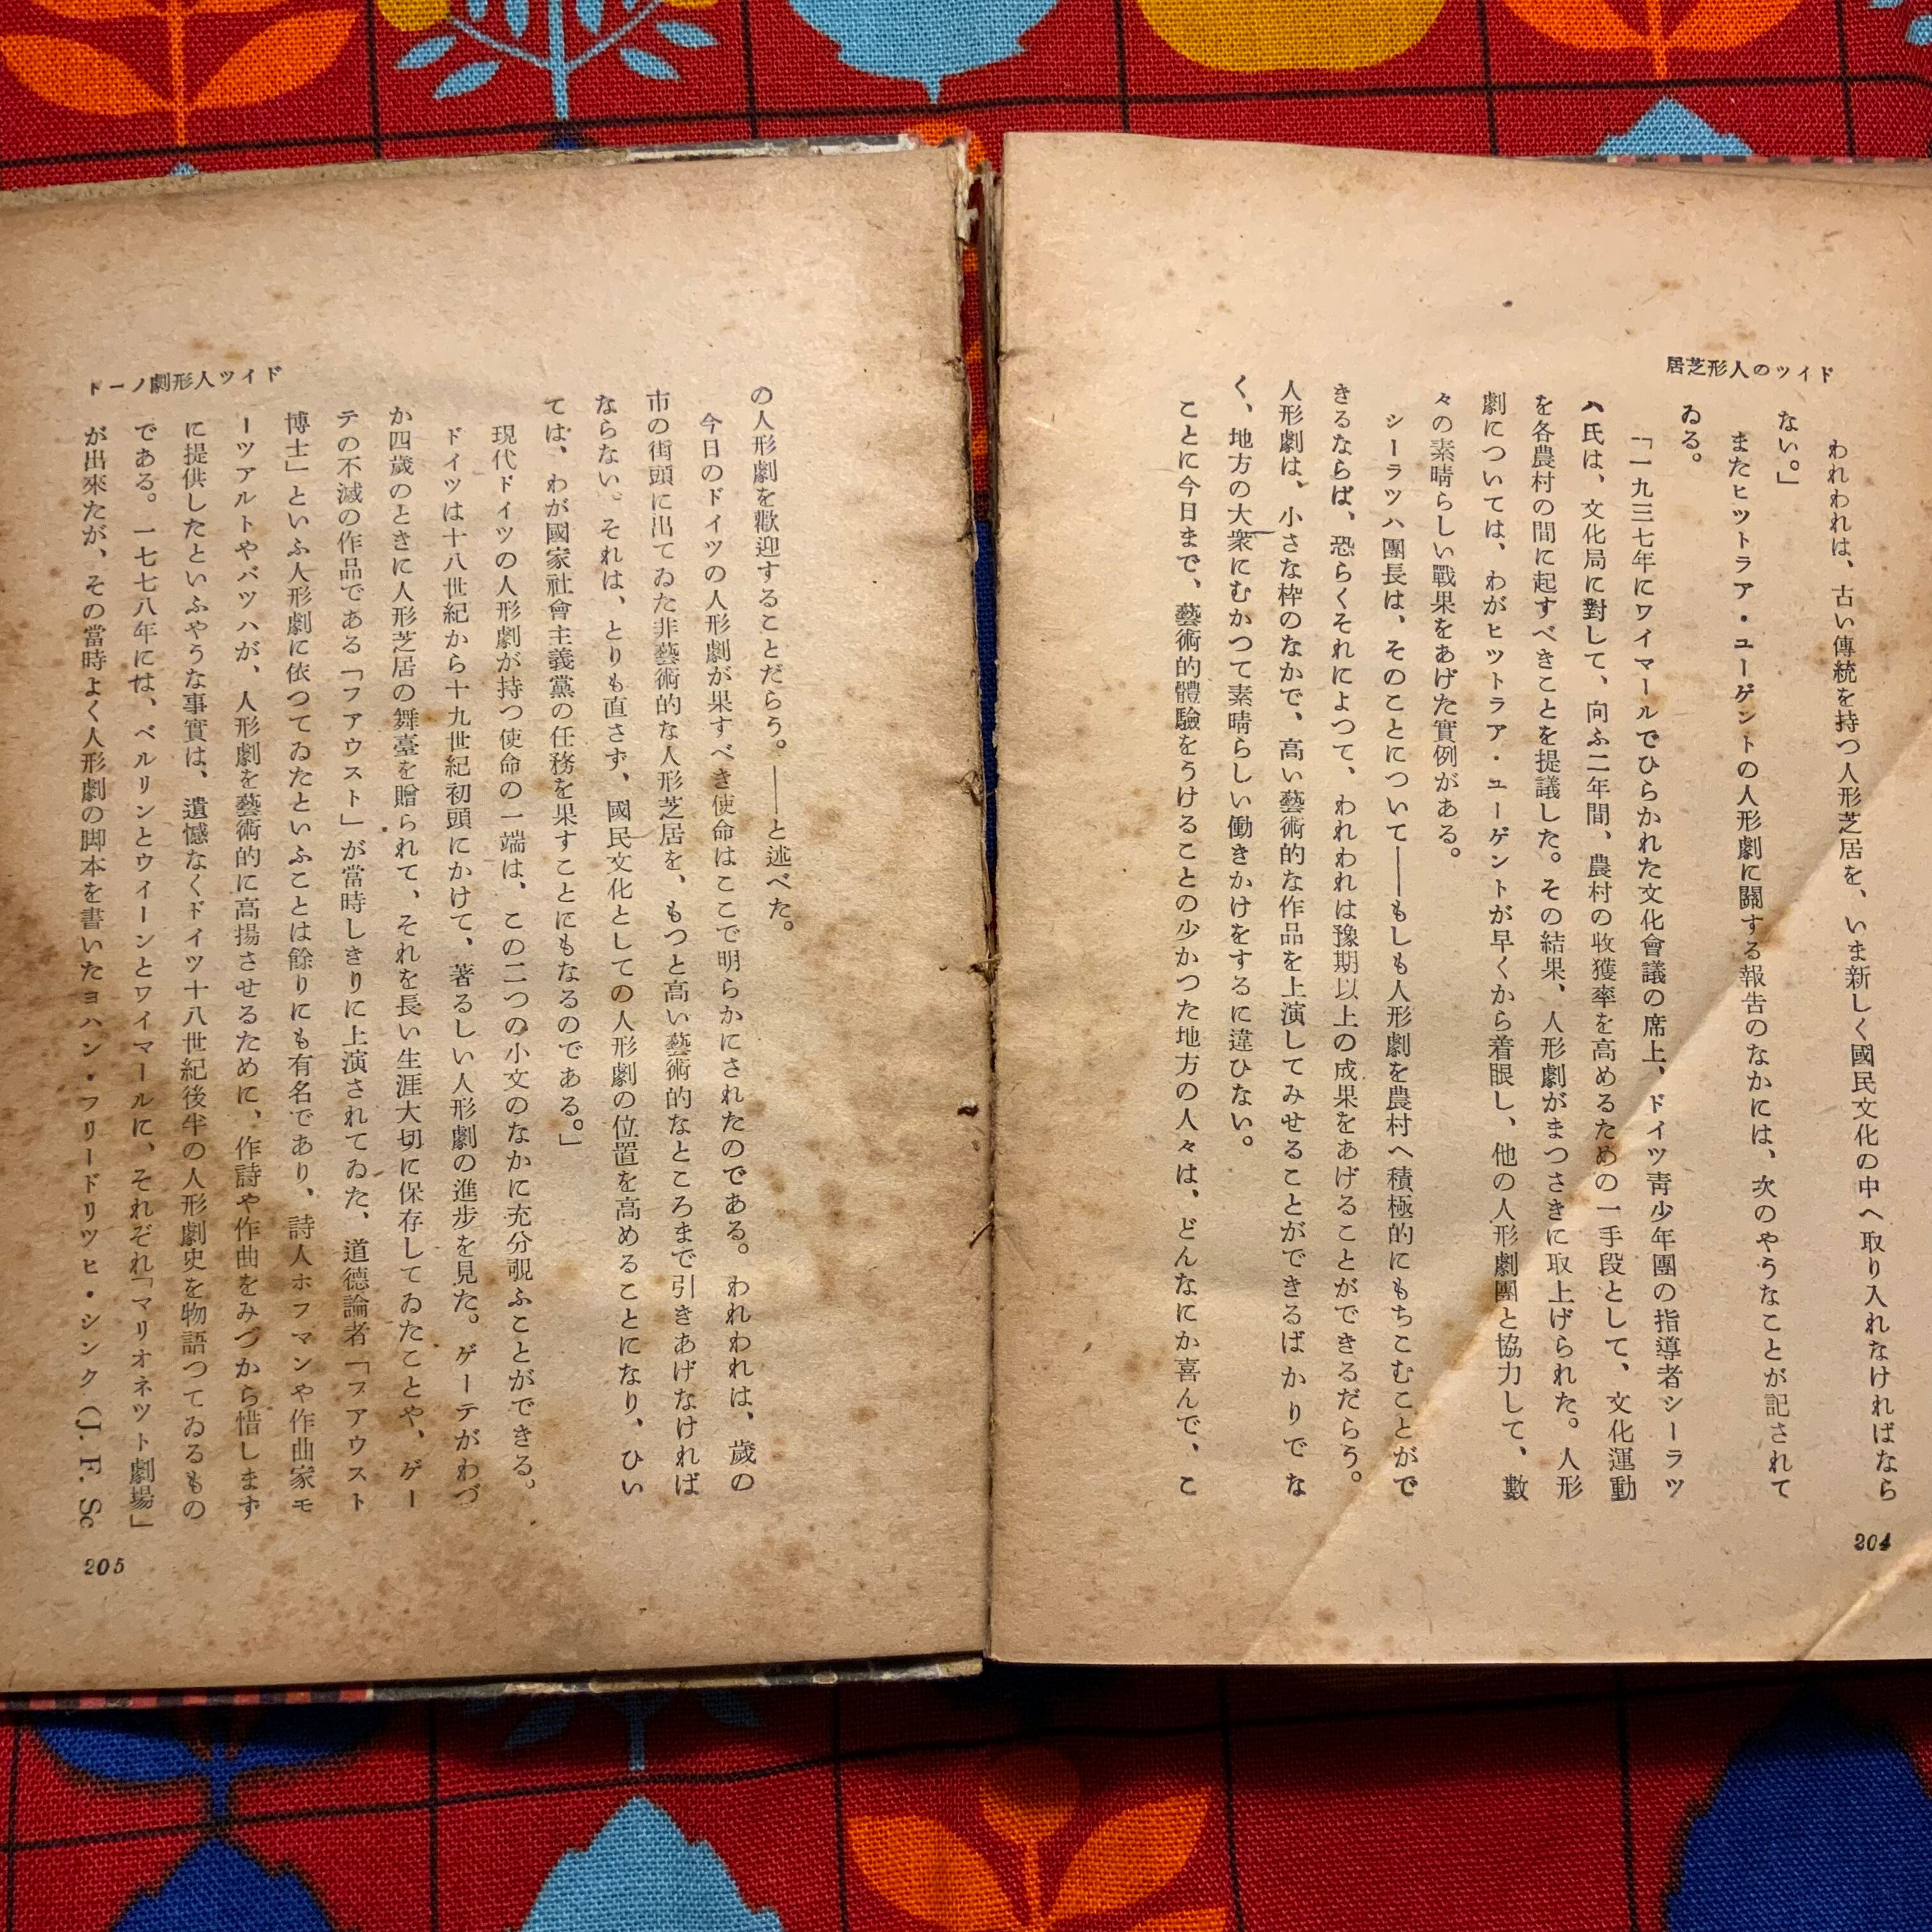 ドイツの人形芝居
われわれは、古い傳統を持つ人形芝居を、いま新しく國民文化の中へ取り入れなければなら
ない。」
またヒツトラア・ユーゲントの人形劇に關する報告のなかには、次のやうなことが記されて
ゐる。
「一九三七年にワイマールでひらかれた文化會議の席上、ドイツ靑少年團の指導者シーラツ
ハ氏は、文化局に對して、向ふ二年間、農村の收獲率を高めるための一手段として、文化運動
を各農村の間に起すべきことを提議した。その結果、人形劇がまつさきに取上げられた。人形
劇については、わがヒツトラア・ユーゲントが早くから着眼し、他の人形劇團と協力して、數
々の素晴らしい戰果をあげた實例がある。
シーラツハ團長は、そのことについて――もしも人形劇を農村へ積極的にもちこむことがで
きるならば、恐らくそれによつて、われわれは豫期以上の成果をあげることができるだらう。
人形劇は、小さな枠のなかで、高い藝術的な作品を上演してみせることができるばかりでな
く、地方の大衆にむかつて素晴らしい働きかけをするに違ひない。
ことに今日まで、藝術的體驗をうけることの少かつた地方の人々は、どんなにか喜んで、こ
204
の人形劇を歡迎することだらう。――と述べた。
今日のドイツの人形劇が果すべき使命はここで明らかにされたのである。われわれは、歲の
市の街頭に出てゐた非藝術的な人形芝居を、もつと高い藝術的なところまで引きあげなければ
ならない。それは、とりも直さず、國民文化としての人形劇の位置を高めることになり、ひい
ては、わが國家社會主義黨の任務を果すことにもなるのである。」
現代ドイツの人形劇が持つ使命の一端は、この二つの小文のなかに充分覗ふことができる。
ドイツは十八世紀から十九世紀初頭にかけて、著るしい人形劇の進步を見た。ゲーテがわづ
か四歲のときに人形芝居の舞臺を贈られて、それを長い生涯大切に保存してゐたことや、ゲー
テの不滅の作品である「フアウスト」が當時しきりに上演されてゐた、道德論者「フアウスト
博士」といふ人形劇に依つてゐたといふことは餘りにも有名であり、詩人ホフマンや作曲家モ
ーツアルトやバツハが、人形劇を藝術的に高揚させるために、作詩や作曲をみづから惜しまず
に提供したといふやうな事實は、遺憾なくドイツ十八世紀後半の人形劇史を物語つてゐるもの
である。一七七八年には、ベルリンとウイーンとワイマールに、それぞれ「マリオネツト劇場」
が出來たが、その當時よく人形劇の脚本を書いたヨハン・フリードリツヒ・シンク（J. F. Sc
ドイツ人形劇ノート
205